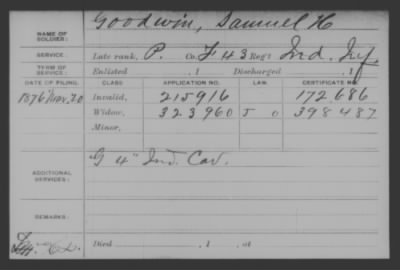 NAME OF SOLDIER: Goodwin, Samuel H
SERVICE: Late rank, P. Co. F 43 Reg't Ind. Inf
TERM OF SERVICE: Enlisted , 1 Discharged , 1
DATE OF FILING. CLASS APPLICATION NO. LAW. CERTIFICATE NO.
1876 Nov. 20 Invalid, 215916 172.686
Widow, 323960 J O 398487
Minor,
ADDITIONAL SERVICES: "G 4" Ind. Cav.
REMARKS:
Died , 1 , at